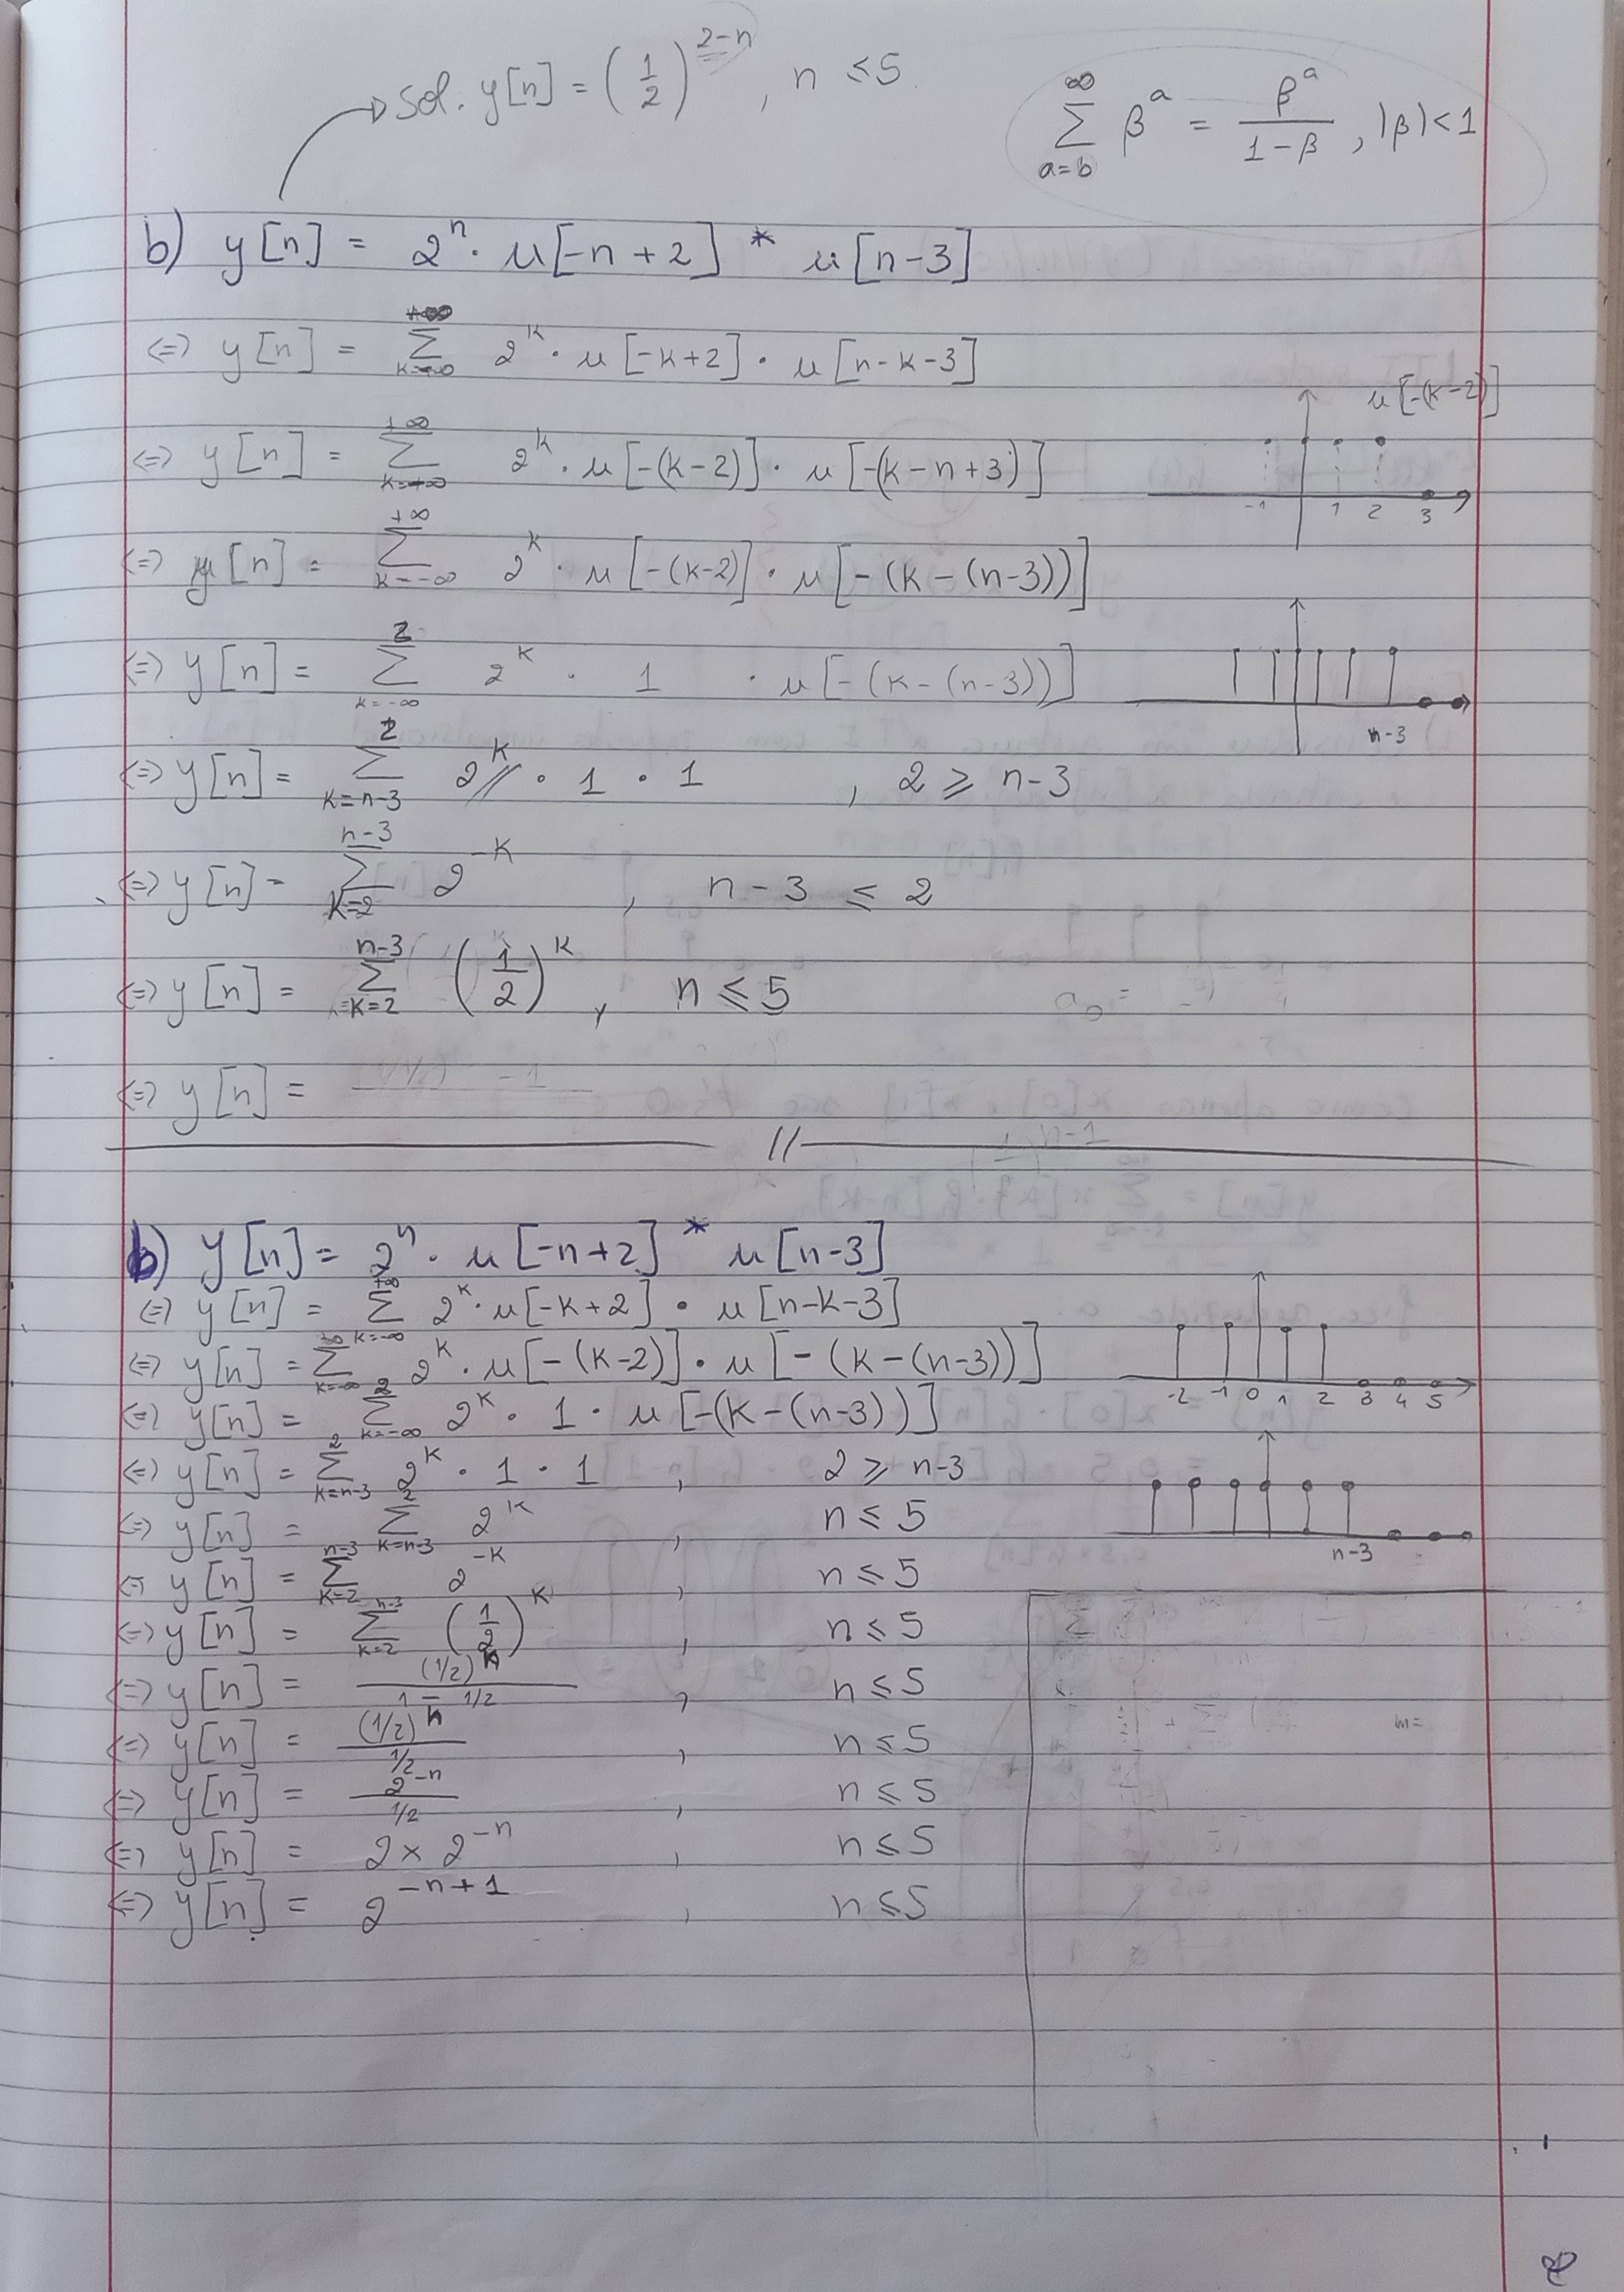 Sol. y[n] = (1/2)^(2-n) , n ≤ 5
∑_(a=b)^∞ β^a = β^a/(1-β) , |β|<1
b) y[n] = 2^n · u[-n+2] * u[n-3]
⇔ y[n] = ∑_(k=-∞)^(+∞) 2^k · u[-k+2] · u[n-k-3]
u[-(k-2)]
⇔ y[n] = ∑_(k=-∞)^(+∞) 2^k · u[-(k-2)] · u[-(k-n+3)]
-1 1 2 3
⇔ y[n] = ∑_(k=-∞)^(+∞) 2^k · u[-(k-2)] · u[-(k-(n-3))]
⇔ y[n] = ∑_(k=-∞)^2 2^k · 1 · u[-(k-(n-3))]
n-3
⇔ y[n] = ∑_(k=n-3)^2 2^k · 1 · 1 , 2 ≥ n-3
⇔ y[n] = ∑_(k=2)^(n-3) 2^(-k) , n-3 ≤ 2
⇔ y[n] = ∑_(k=2)^(n-3) (1/2)^k , n ≤ 5
⇔ y[n] =
//
b) y[n] = 2^n · u[-n+2] * u[n-3]
⇔ y[n] = ∑_(k=-∞)^(+∞) 2^k · u[-k+2] · u[n-k-3]
⇔ y[n] = ∑_(k=-∞)^(+∞) 2^k · u[-(k-2)] · u[-(k-(n-3))]
-2 -1 0 1 2 3 4 5
⇔ y[n] = ∑_(k=-∞)^2 2^k · 1 · u[-(k-(n-3))]
⇔ y[n] = ∑_(k=n-3)^2 2^k · 1 · 1 , 2 ≥ n-3
⇔ y[n] = ∑_(k=n-3)^2 2^k , n ≤ 5
n-3
⇔ y[n] = ∑_(k=2)^(n-3) 2^(-k) , n ≤ 5
⇔ y[n] = ∑_(k=2)^(n-3) (1/2)^k , n ≤ 5
⇔ y[n] = (1/2)^n/(1 - 1/2) , n ≤ 5
⇔ y[n] = (1/2)^n/(1/2) , n ≤ 5
⇔ y[n] = 2^(-n)/(1/2) , n ≤ 5
⇔ y[n] = 2 × 2^(-n) , n ≤ 5
⇔ y[n] = 2^(-n+1) , n ≤ 5